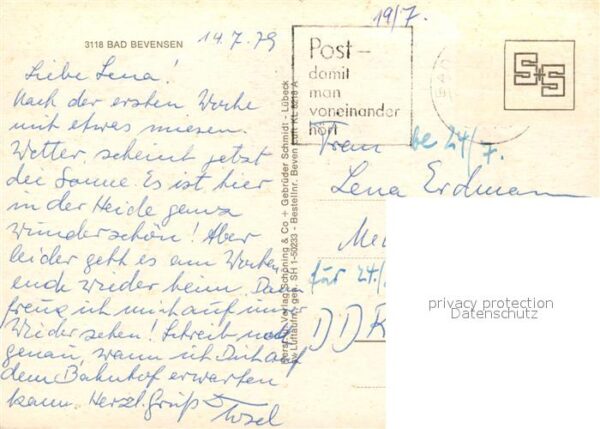 3118 BAD BEVENSEN
14.7.79
Liebe Lena!
Nach der ersten Woche
mit etwas miesem
Wetter, scheint jetzt
die Sonne. Es ist hier
in der Heide ganz
wunderschön! Aber
leider geht es am Wochen
ende wieder heim. Da
freue ich mich auf unser
Wiedersehen! Schreib
genau, wann ich Dich auf
dem Bahnhof erwarten
kann. Herzl. Gruß
Verlag Schöning & Co + Gebrüder Schmidt - Lübeck
Luftaufn. gen. SH 1-50233 - Bestellnr. Beven
19/7.
Post-
damit
man
voneinander
hört
S+S
Frau be 24/7.
Lena Erdmann
für 24./
DDR
privacy protection
Datenschutz